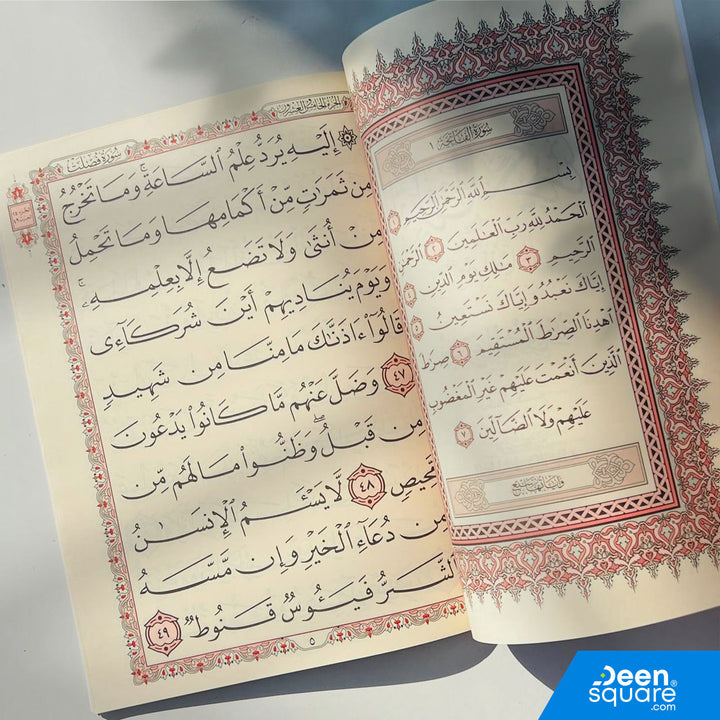 سُورَةُ الفَاتِحَةِ ١
بِسْمِ ٱللَّهِ ٱلرَّحْمَٰنِ ٱلرَّحِيمِ ١
ٱلْحَمْدُ لِلَّهِ رَبِّ ٱلْعَٰلَمِينَ ٢ ٱلرَّحْمَٰنِ
ٱلرَّحِيمِ ٣ مَٰلِكِ يَوْمِ ٱلدِّينِ ٤
إِيَّاكَ نَعْبُدُ وَإِيَّاكَ نَسْتَعِينُ ٥
ٱهْدِنَا ٱلصِّرَٰطَ ٱلْمُسْتَقِيمَ ٦ صِرَٰطَ
ٱلَّذِينَ أَنْعَمْتَ عَلَيْهِمْ غَيْرِ ٱلْمَغْضُوبِ
عَلَيْهِمْ وَلَا ٱلضَّآلِّينَ ٧
وآياتها سبع
الجزء الخامس والعشرون
سُورَةُ فُصِّلَتْ
۞ إِلَيْهِ يُرَدُّ عِلْمُ ٱلسَّاعَةِ ۚ وَمَا تَخْرُجُ
مِن ثَمَرَٰتٍ مِّنْ أَكْمَامِهَا وَمَا تَحْمِلُ
مِنْ أُنثَىٰ وَلَا تَضَعُ إِلَّا بِعِلْمِهِۦ ۚ
وَيَوْمَ يُنَادِيهِمْ أَيْنَ شُرَكَآءِى
قَالُوٓا۟ ءَاذَنَّٰكَ مَا مِنَّا مِن شَهِيدٍ
٤٧ وَضَلَّ عَنْهُم مَّا كَانُوا۟ يَدْعُونَ
مِن قَبْلُ ۖ وَظَنُّوا۟ مَا لَهُم مِّن
مَّحِيصٍ ٤٨ لَّا يَسْـَٔمُ ٱلْإِنسَٰنُ
مِن دُعَآءِ ٱلْخَيْرِ وَإِن مَّسَّهُ
ٱلشَّرُّ فَيَـُٔوسٌ قَنُوطٌ ٤٩
٥
Deen
square®
.com